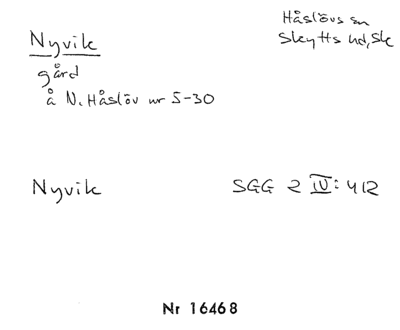 Nyvik
Håslövs sn
Skytts hd, Sk
gård
å N. Håslöv nr 5-30
Nyvik
SGG 2 IV: 412
Nr 16468